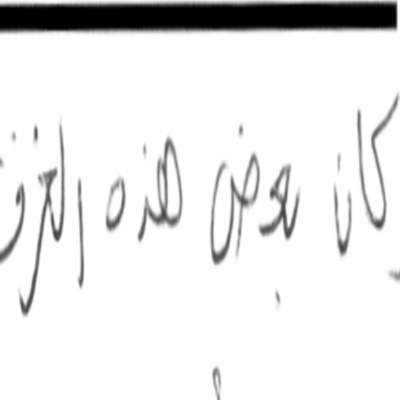 كان بعض هذه الغرف